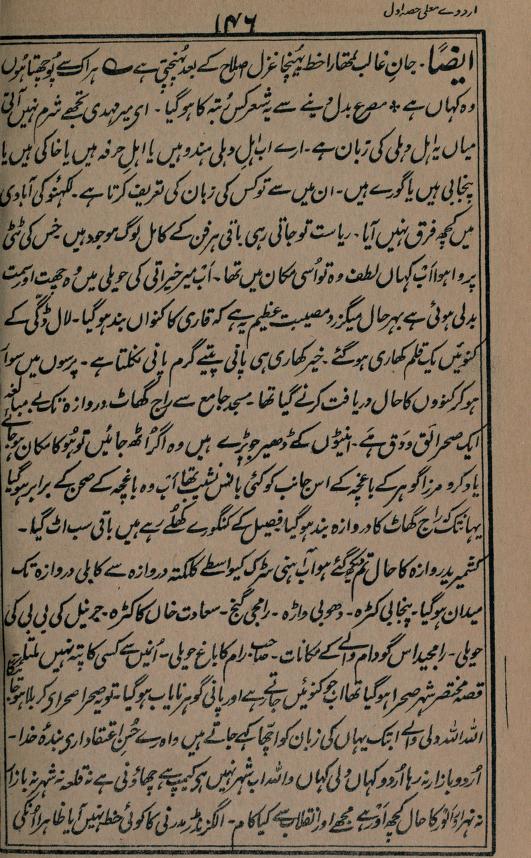 اردوے معلی حصہ اول
۱۴۶
ایضاً۔ جانِ غالب تمھارا خط پہنچا غزل اصلاح کے بعد پہنچتی ہے ہر اک سے پوچھتا ہوں
وہ کہاں ہے ؞ مصرع بدل دینے سے یہ شعر کس رتبہ کا ہوگیا ۔ ای میر مہدی تجھے شرم نہیں آتی
میاں یہ اہل دہلی کی زبان ہے۔ ارے اب اہل دہلی ہندو ہیں یا اہل حرفہ ہیں یا خاکی ہیں یا
پنجابی ہیں یا گورے ہیں۔ ان میں سے تو کس کی زبان کی تعریف کرتا ہے۔ لکہنؤ کی آبادی
میں کچھ فرق نہیں آیا۔ ریاست تو جاتی رہی باقی ہر فن کے کامل لوگ موجود ہیں خس کی ٹٹی
پروا ہوا اب کہاں لطف وہ تو اُسی مکان میں تھا۔ اب میر خیراتی کی حویلی میں وہ چھت اور سمت
بدلی ہوئی ہے بہر حال میگزرد مصیبت عظیم یہ ہے کہ قاری کا کنواں بند ہوگیا۔ لال ڈگی کے
کنوئیں یک قلم کھاری ہو گئے۔ خیر کھاری ہی پانی پیتے گرم پانی نکلتا ہے۔ پرسوں میں سوار
ہو کر کنووں کا حال دریافت کرنے گیا تھا۔ مسجد جامع سے راج گھاٹ دروازہ تک بے مبالغہ
ایک صحرا لق و دق ہے۔ اینٹوں کے ڈھیر جو پڑے ہیں وہ اگر اُٹھ جائیں تو ہو کا مکان ہو جائے
یاد کرو مرزا گوہر کے باغچہ کے اس جانب کو کئی بانس نشیب تھا اب وہ باغچہ کے صحن کے برابر ہوگیا
یہانتک کہ راج گھاٹ کا دروازہ بند ہوگیا فصیل کے کنگورے کھلے رہے ہیں باقی سب اٹ گیا۔
کشمیری دروازہ کا حال تم دیکھ گئے ہو اب آہنی سڑک کیواسطے کلکتہ دروازہ سے کابلی دروازہ تک
میدان ہوگیا۔ پنجابی کٹرہ۔ دھوبی واڑہ۔ رامجی گنج۔ سعادت خاں کا کٹرہ۔ جرنیل کی بی بی کی
حویلی۔ رامجیداس گودام والے کے مکانات۔ صاحب رام کا باغ حویلی۔ اُنمیں سے کسی کا پتہ نہیں ملتا
قصہ مختصر شہر صحرا ہوگیا تھا اب جو کنوئیں جاتے رہے اور پانی گوہر نایاب ہوگیا۔ تو یہ صحرا صحرای کربلا ہو جائیگا
اللہ اللہ دلی والے ابتک یہاں کی زبان کو اچھا کہے جاتے ہیں واہ رے حُسنِ اعتقاد اری بندۂ خدا۔
اُردو بازار نہ رہا اُردو کہاں دلی کہاں واللہ اب شہر نہیں ہی کیمپ ہے چھاؤنی ہے نہ قلعہ نہ شہر نہ بازار
نہ نہر اَلوَر کا حال کچھ اَور ہے مجھے اور انقلاب سے کیا کام۔ الگزنڈر ہدرلی کا کوئی خط نہیں آیا ظاہرا اُنکی